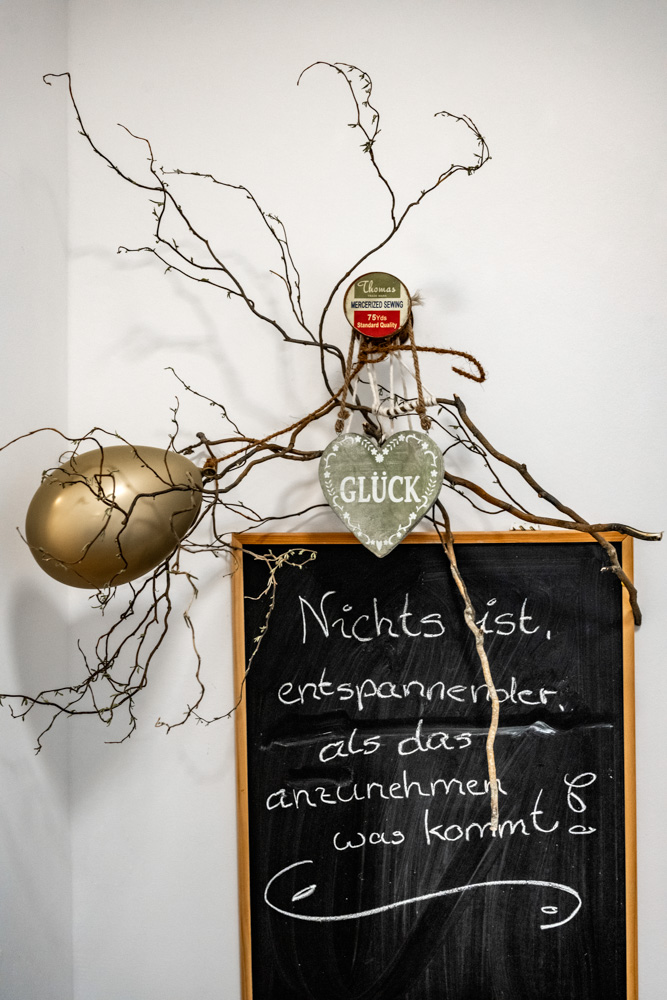 Thomas
MERCERIZED SEWING
75Yds
Standard Quality
GLÜCK
Nichts ist,
entspannender,
als das
anzunehmen
was kommt!